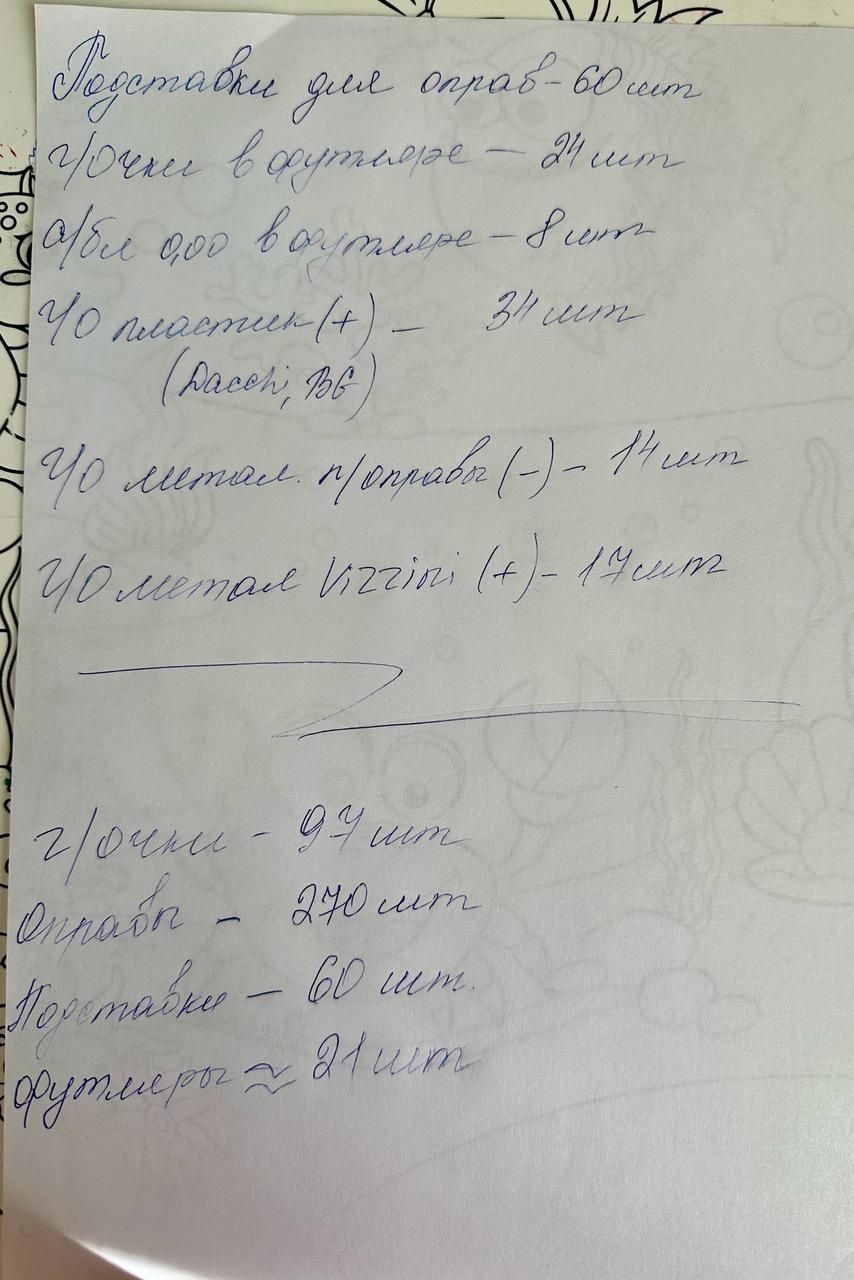 Подставки для оправ - 60 шт
г/очки в футляре - 24 шт
а/бл 0,00 в футляре - 8 шт
Г/О пластик (+) - 34 шт
(Dacchi, BG)
Г/О метал. п/оправы (-) - 14 шт
Г/О метал Vizzini (+) - 17 шт
г/очки - 97 шт
Оправы - 270 шт
Подставки - 60 шт.
футляры ≈ 21 шт